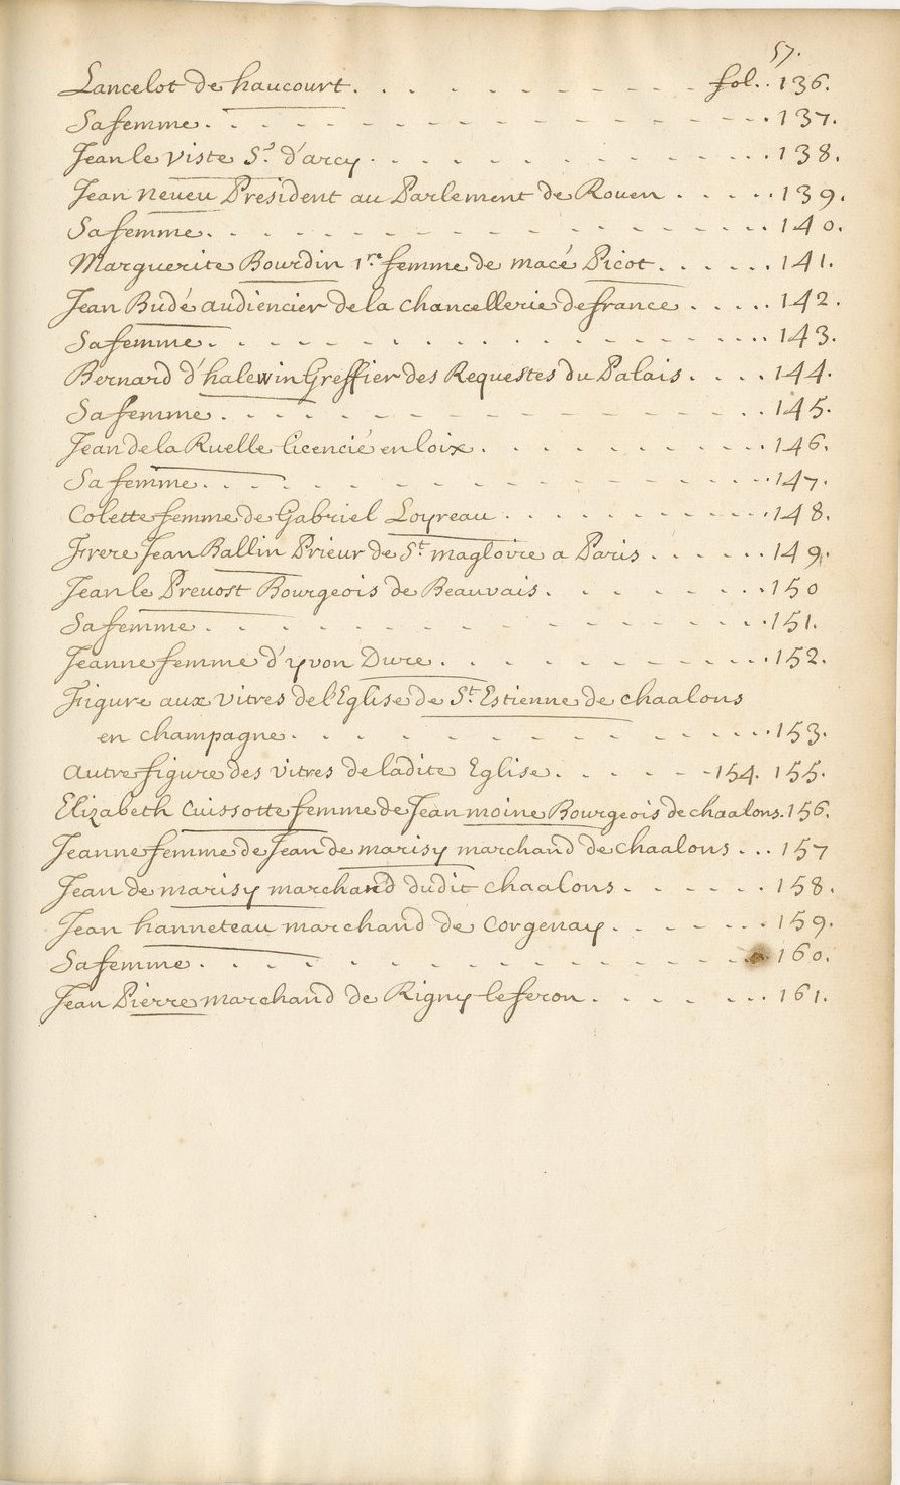 57.
Lancelot de haucourt. . . . . . . . . . fol. . 136.
Sa femme. . . . . . . . . . . . 137.
Jean le viste Sr. d'arcy . . . . . . . . . . . 138.
Jean neveu President au Parlement de Rouen . . . . . 139.
Sa femme. . . . . . . . . . . . 140.
Marguerite Bourdin 1re femme de macé Picot. . . . . . 141.
Jean Budé audiencier de la chancellerie de france . . . . . 142.
Sa femme. . . . . . . . . . . . 143.
Bernard d'halewin Greffier des Requestes du Palais. . . . 144.
Sa femme. . . . . . . . . . . . 145.
Jean de la Ruelle licencié en loix. . . . . . . . . . 146.
Sa femme. . . . . . . . . . . . 147.
Colette femme de Gabriel Loyreau . . . . . . . . . 148.
Frere Jean Ballin Prieur de St. magloire a Paris. . . . . . 149.
Jean le Prevost Bourgeois de Beauvais. . . . . . . . 150
Sa femme. . . . . . . . . . . . 151.
Jeanne femme d'yvon Dure. . . . . . . . . . . 152.
Figure aux vitres de l'Eglise de St. Estienne de chaalons
en champagne. . . . . . . . . . . . 153.
autre figure des vitres de ladite Eglise. . . . . . 154. 155.
Elizabeth Cuissotte femme de Jean moine Bourgeois de chaalons. 156.
Jeanne femme de Jean de marisy marchand de chaalons . . . 157
Jean de marisy marchand dudit chaalons. . . . . . . 158.
Jean hanneteau marchand de Corgenay. . . . . . . 159.
Sa femme. . . . . . . . . . . . 160.
Jean Pierre marchand de Rigny le feron. . . . . . . 161.